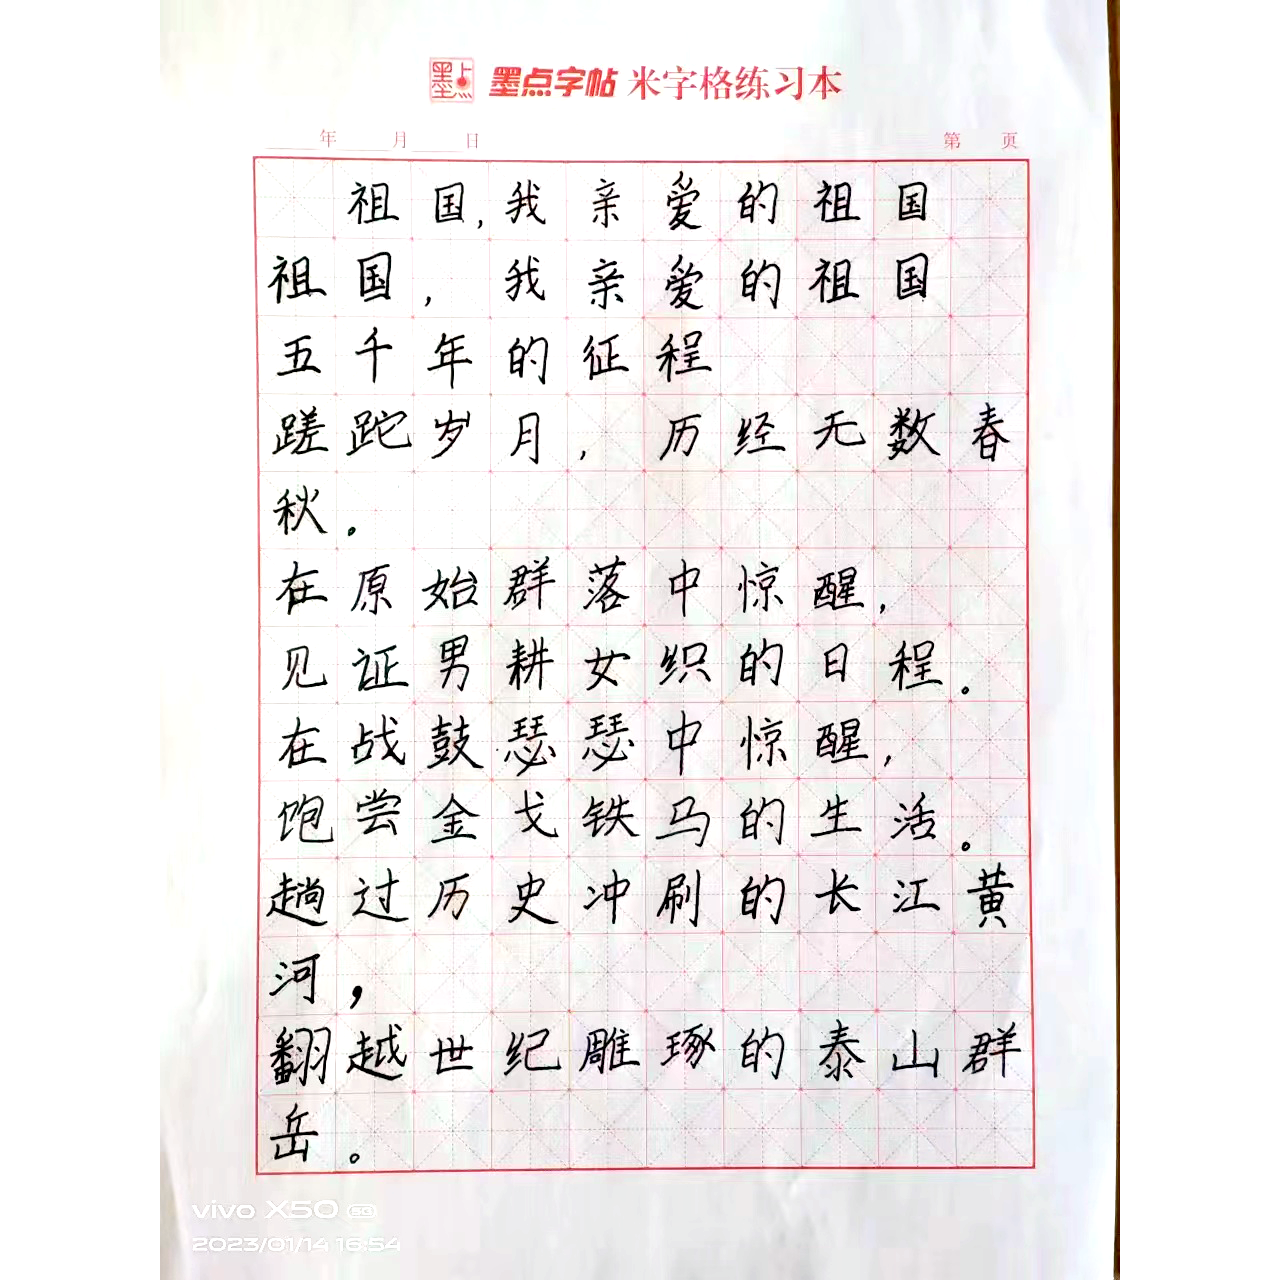 墨点 墨点字帖 米字格练习本
年 月 日 第 页
祖国,我亲爱的祖国
祖国,我亲爱的祖国
五千年的征程
蹉跎岁月,历经无数春
秋。
在原始群落中惊醒,
见证男耕女织的日程。
在战鼓瑟瑟中惊醒,
饱尝金戈铁马的生活。
趟过历史冲刷的长江黄
河,
翻越世纪雕琢的泰山群
岳。
vivo X50 5G
2023/01/14 16:54